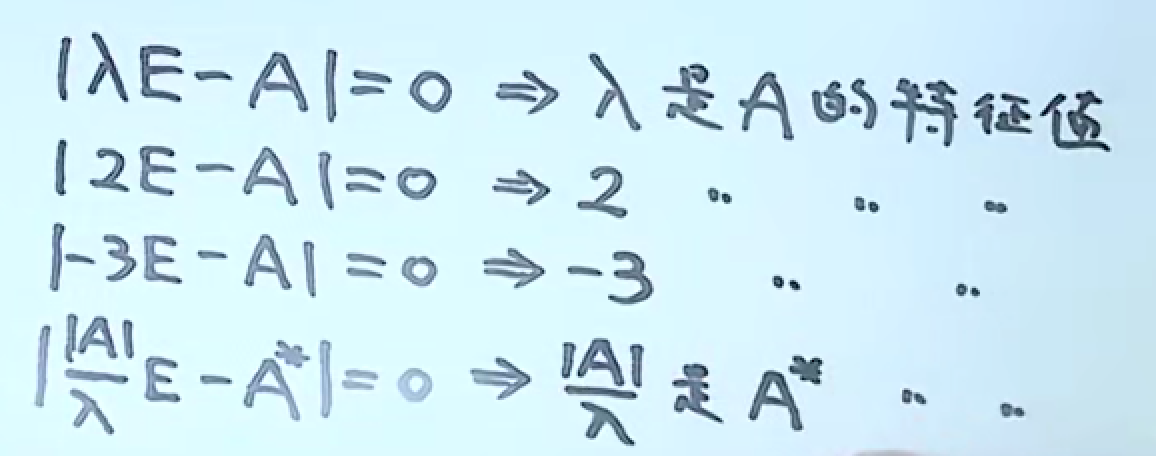 |λE-A|=0 ⇒ λ是A的特征值
|2E-A|=0 ⇒ 2 〃 〃 〃
|-3E-A|=0 ⇒ -3 〃 〃
||A|/λ E-A*|=0 ⇒ |A|/λ 是 A* 〃 〃